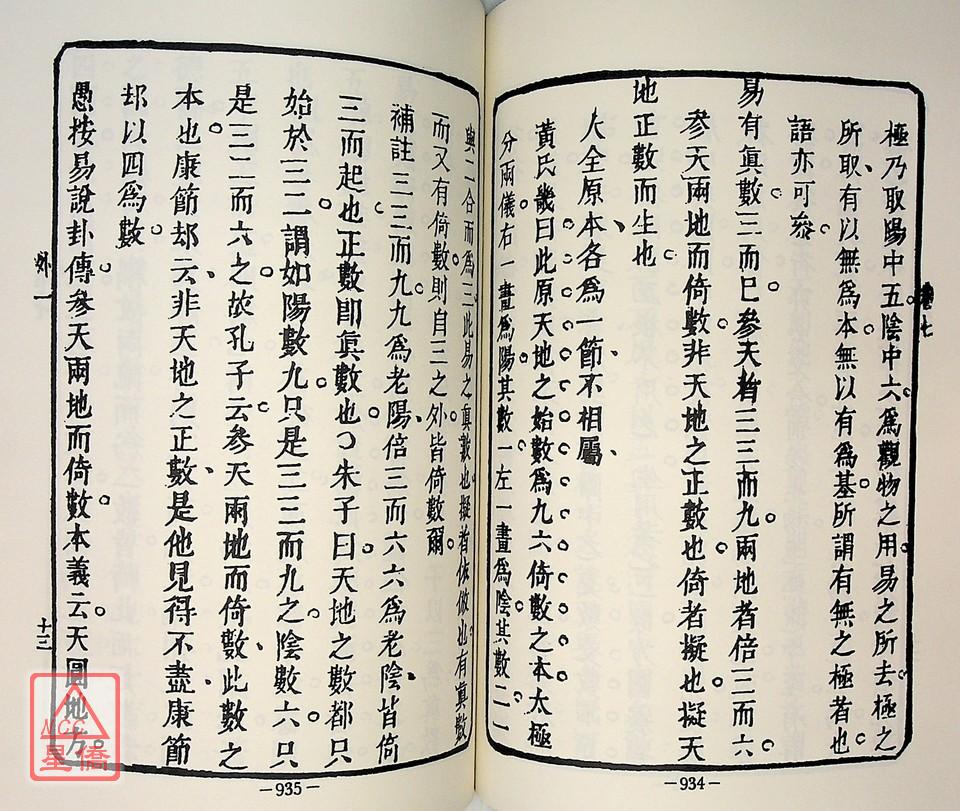 極乃取陽中五陰中六爲觀物之用易之所去極之
所取有以無爲本無以有爲基所謂有無之極者也
語亦可叅
易有眞數三而已參天者三三而九兩地者倍三而六
參天兩地而倚數非天地之正數也倚者擬也擬天
地正數而生也
大全原本各爲一節不相屬
黃氏畿曰此原天地之始數爲九六倚數之本太極
分兩儀右一畫爲陽其數一左一畫爲陰其數二一
卷七
－934－
與二合而爲三此易之眞數也擬者依倣也有眞數
而又有倚數則自三之外皆倚數爾
補註三三而九九爲老陽倍三而六六爲老陰皆倚
三而起也正數卽眞數也朱子曰天地之數都只
始於三二謂如陽數九只是三三而九之陰數六只
是三二而六之故孔子云參天兩地而倚數此數之
本也康節却云非天地之正數是他見得不盡康節
却以四爲數
愚按易說卦傳參天兩地而倚數本義云天圓地方
外一
十三
－935－
NCC
星僑